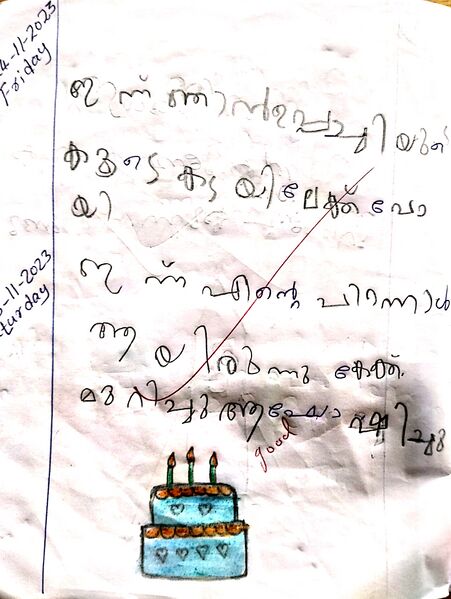 4-11-2023
Friday
ഇന്ന് ഞാൻ ഉപ്പച്ചിയുടെ
കൂടെ കടയിലേക്ക് പോ
യി
5-11-2023
turday
ഇന്ന് എന്റെ പിറന്നാൾ
ആയിരുന്നു കേക്ക്
മുറിച്ചു ആഘോഷിച്ചു
good